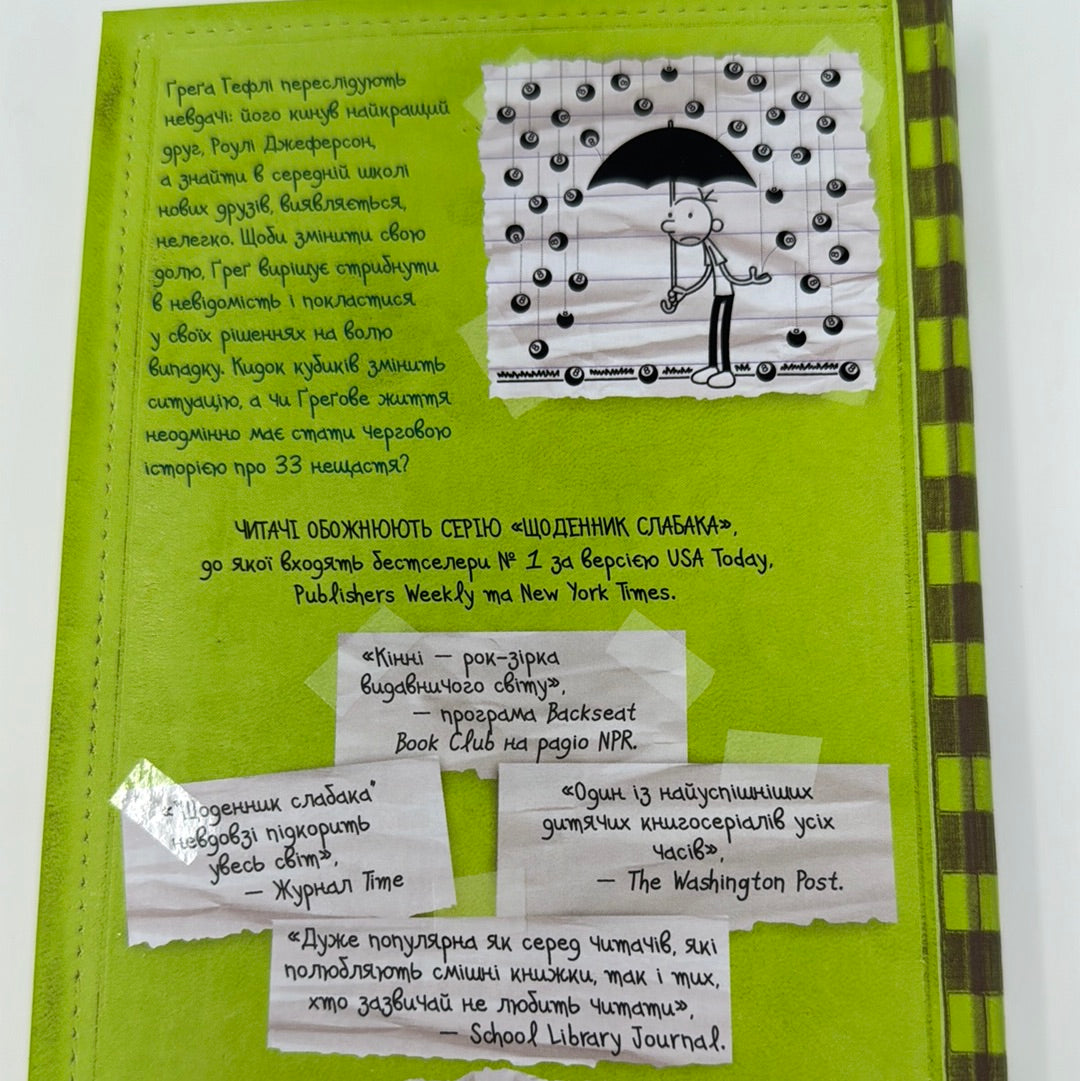 Ґреґа Гефлі переслідують
невдачі: його кинув найкращий
друг, Роулі Джеферсон,
а знайти в середній школі
нових друзів, виявляється,
нелегко. Щоби змінити свою
долю, Ґреґ вирішує стрибнути
в невідомість і покластися
у своїх рішеннях на волю
випадку. Кидок кубиків змінить
ситуацію, а чи Ґреґове життя
неодмінно має стати черговою
історією про 33 нещастя?
ЧИТАЧІ ОБОЖНЮЮТЬ СЕРІЮ «ЩОДЕННИК СЛАБАКА»,
до якої входять бестселери № 1 за версією USA Today,
Publishers Weekly та New York Times.
«Кінні — рок-зірка
видавничого світу»,
— програма Backseat
Book Club на радіо NPR.
«"Щоденник слабака"
невдовзі підкорить
увесь світ»,
— Журнал Time
«Один із найуспішніших
дитячих книгосеріалів усіх
часів»,
— The Washington Post.
«Дуже популярна як серед читачів, які
полюбляють смішні книжки, так і тих,
хто зазвичай не любить читати»,
— School Library Journal.